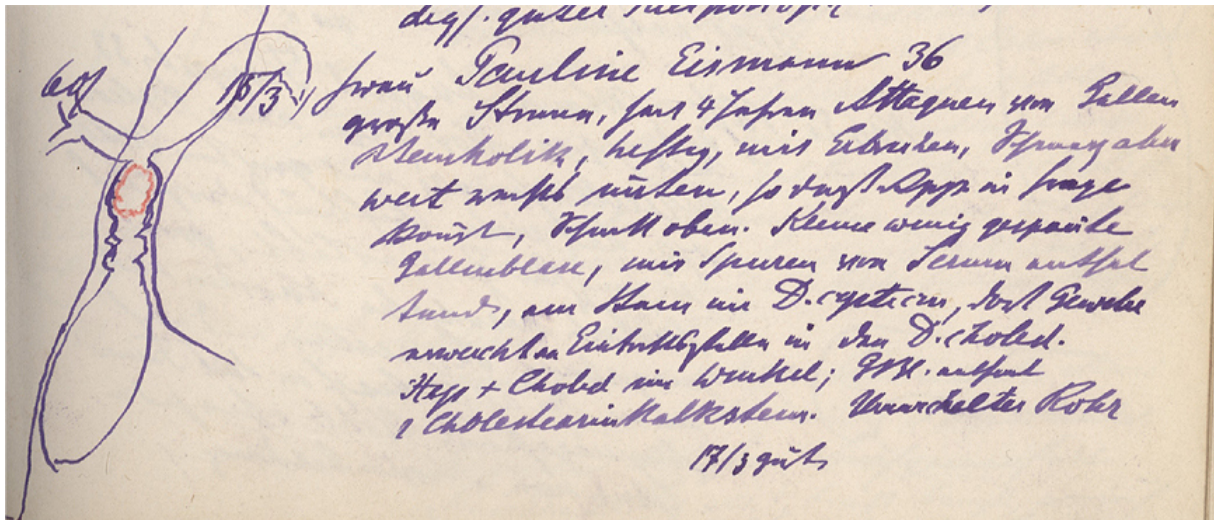 dgl. guter
601
15/3 Frau Pauline Eismann 36
große Struma, seit 4 Jahren Attaquen von Gallen
steinkolik, heftig, mit Erbrechen,
weit unten, so daß App in Frage
kommt, Schnitt oben. Kleine wenig gespannte
Gallenblase, mit Spuren von Serum enthal
tend, ein Stein im D. cysticus, dort Gewebe
erweicht an Eintrittsstelle in den D. choled.
Hep + Choled im Winkel; GBl. entfernt
1 Cholestearinkalkstein. Umwickeltes Rohr
17/3 gut